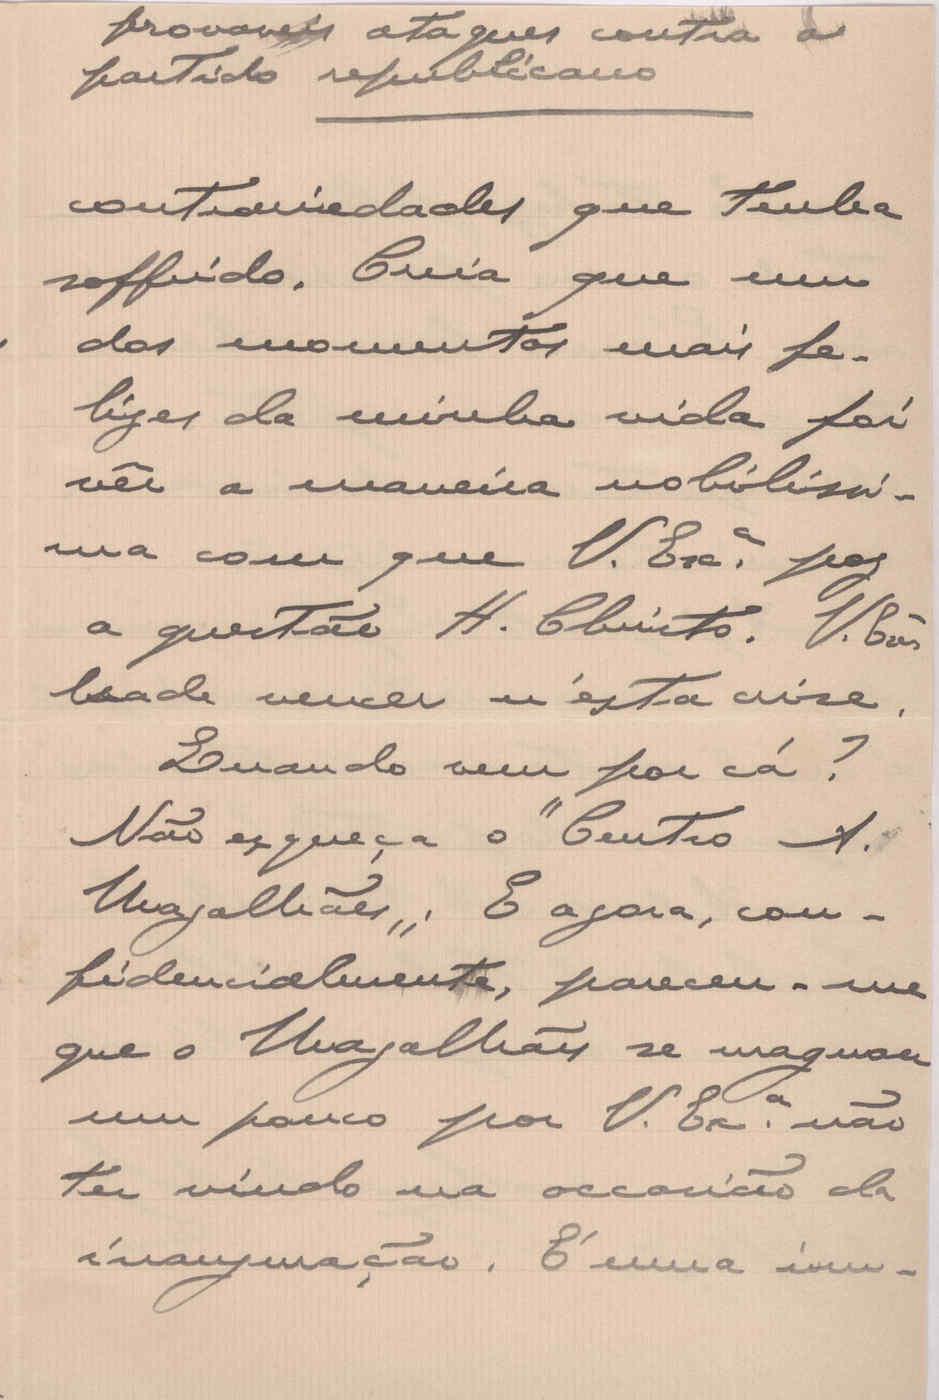 provaveis ataques contra o
partido republicano
contrariedades que tenha
soffrido. Creia que um
dos momentos mais fe-
lizes da minha vida foi
vêr a maneira nobilissi-
ma com que V. Exª. poz
a questão H. Christo. V. Exª
hade vencer n'esta crise.
Quando vem por cá?
Não esqueça o "Centro A.
Magalhães„. E agora, con-
fidencialmente, pareceu-me
que o Magalhães se maguou
um pouco por V. Exª. não
ter vindo na occasião da
inauguração. É uma im-